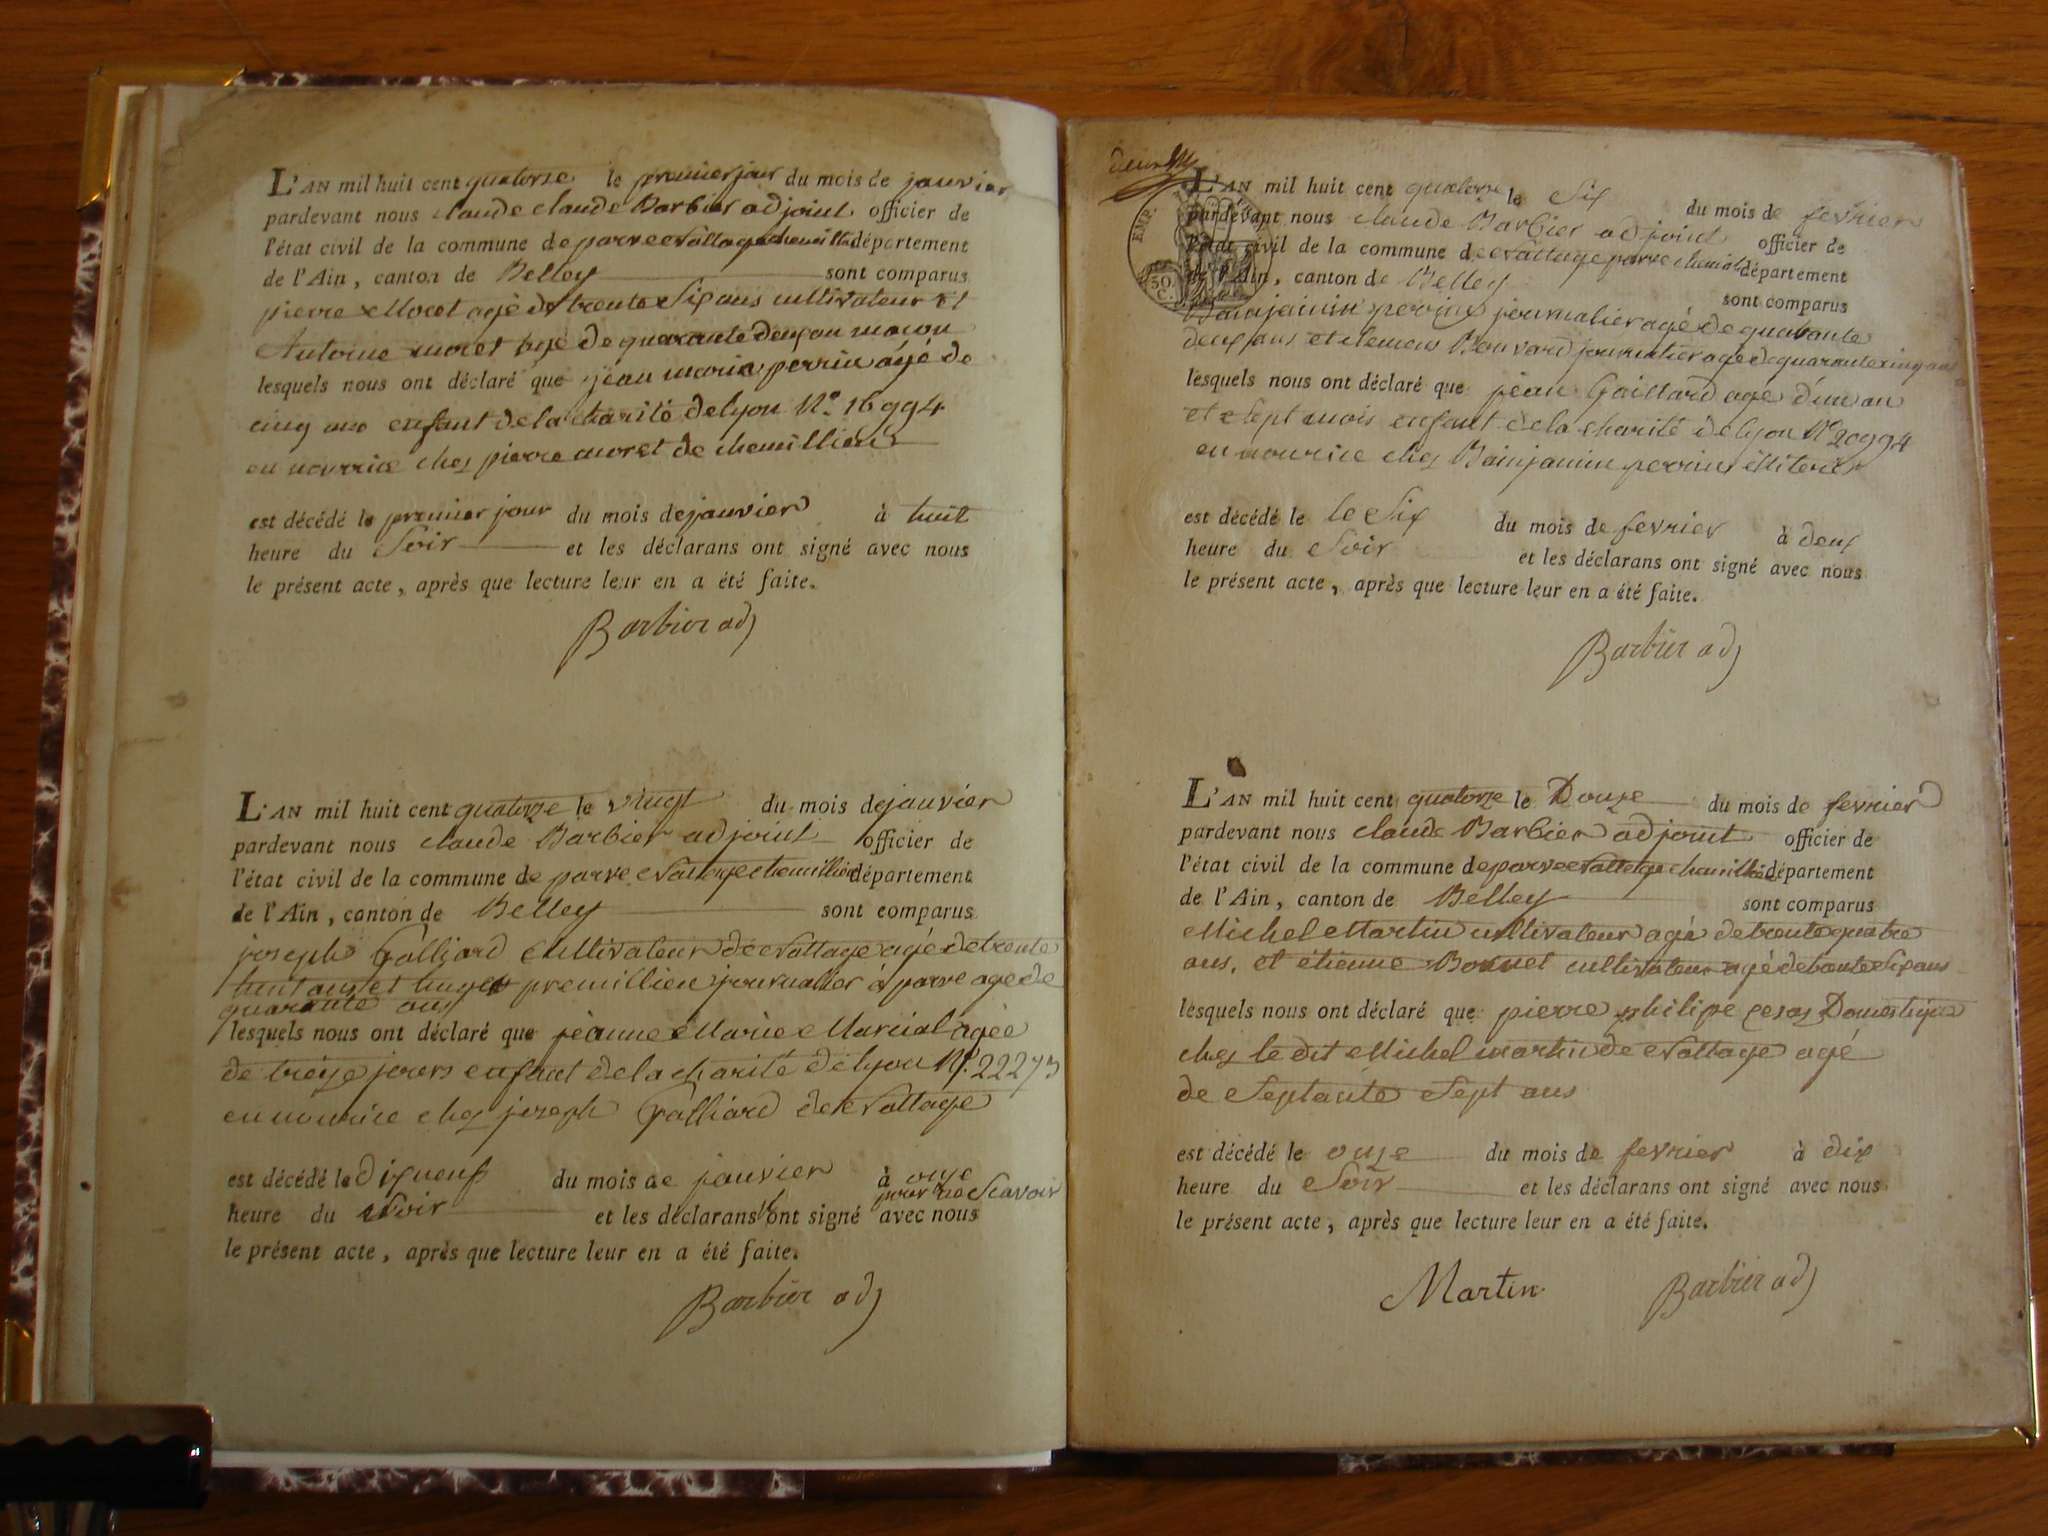 L'AN mil huit cent quatorze le premier jour du mois de janvier
pardevant nous claude claude Barbier adjoint officier de
l'état civil de la commune de parve evattage chemillieu département
de l'Ain, canton de Belley sont comparus
pierre Moret agé de trente Six ans cultivateur et
Antoine moret agé de quarante deux an maçon
lesquels nous ont déclaré que jean marie perrin agé de
cinq ans enfant de la charité de lyon N.º 16994
en nourrice ches pierre moret de chemillieu
est décédé le premier jour du mois de janvier à huit
heure du Soir et les déclarans ont signé avec nous
le présent acte, après que lecture leur en a été faite.
Barbier adj
L'AN mil huit cent quatorze le vingt du mois de janvier
pardevant nous claude Barbier adjoint officier de
l'état civil de la commune de parve evattage chemillieu département
de l'Ain, canton de Belley sont comparus
joseph Galliard Cultivateur de evattage agé de trente
huit ans et premillieu journalier à parve age de
quarante ans
lesquels nous ont déclaré que jeanne Marie Marcial agée
de treize jours enfant de la charité de lyon Nº. 22273
en nourice ches joseph Galliard de evattage
est décédé le dix neuf du mois de janvier à onze
pour ne Scavoir
heure du Soir et les déclarans ont signé avec nous
le présent acte, après que lecture leur en a été faite.
Barbier adj
L'AN mil huit cent quatorze le Six du mois de fevrier
pardevant nous claude Barbier adjoint officier de
l'état civil de la commune de evattage parve département
de l'Ain, canton de Belley sont comparus
Bainjamin perrin journalier agé de quarante
deux ans et clemens Bouvard journalier agé de quarante cinq ans
lesquels nous ont déclaré que jean Gaillard age d'un an
et Sept mois enfant de la charité de lyon Nº 20994
en nourice ches Bainjamin perrin illiterés
est décédé le le Six du mois de fevrier à deux
heure du Soir et les déclarans ont signé avec nous
le présent acte, après que lecture leur en a été faite.
Barbier adj
L'AN mil huit cent quatorze le Douze du mois de fevrier
pardevant nous claude Barbier adjoint officier de
l'état civil de la commune de parve evattage chemillieu département
de l'Ain, canton de Belley sont comparus
Michel Martin cultivateur agé de trente quatre
ans, et étienne Bonnet cultivateur agé de trente Six ans
lesquels nous ont déclaré que pierre philipe Domestique
ches le dit Michel martin de evattage agé
de Septante Sept ans
est décédé le onze du mois de fevrier à dix
heure du Soir et les déclarans ont signé avec nous
le présent acte, après que lecture leur en a été faite.
Martin Barbier adj